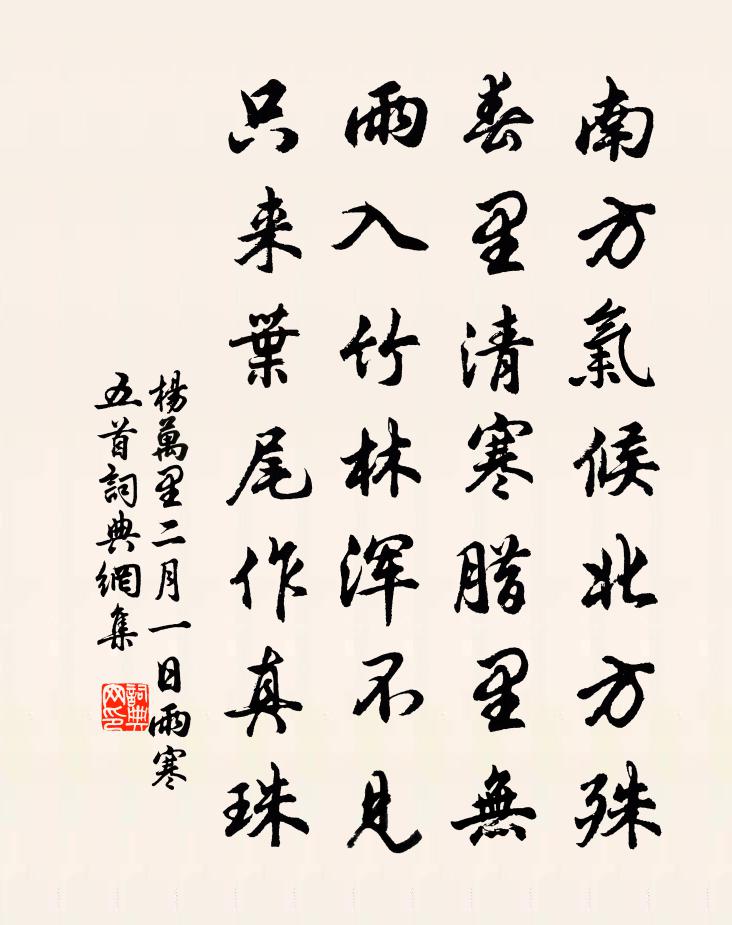 南方氣候北方殊
春里清寒腊里無
雨入竹林浑不見
只来葉尾作真珠
楊萬里二月一日雨寒
五首詞典網集
詞典
网印